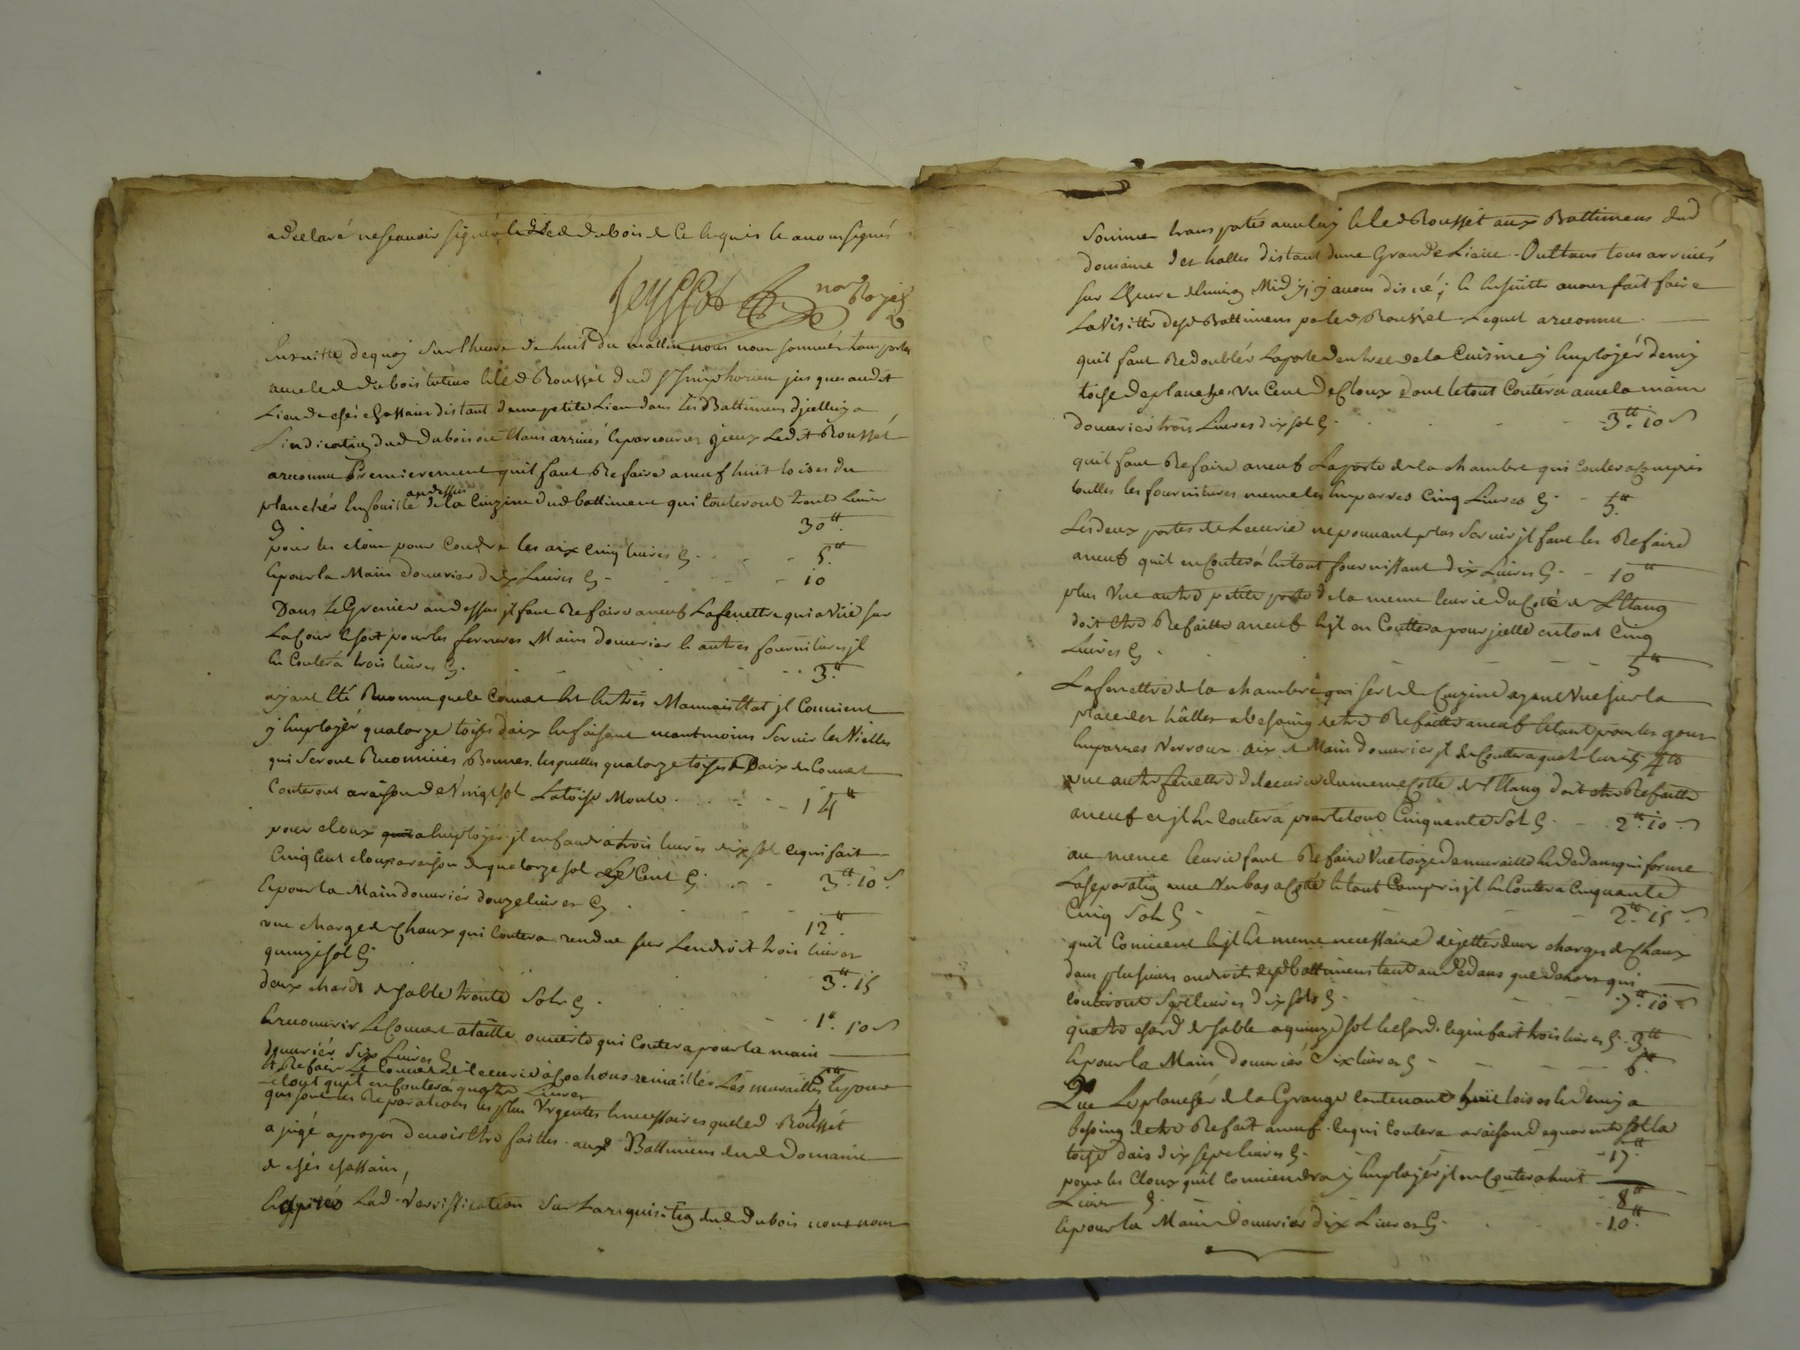 a declaré ne scavoir signer led. Sr. dubois de ce requis et avons signés
Teyssot nore Royal
Ensuitte dequoy sur lheure de huit du mattin nous nous sommes transportes
avec led dubois tuteur et led Roussét dud St Simphorien jusques audit
Lieu de chés chassain distant dune petite Lieu dans les Battimens dicelluy a
Lindication dud dubois ou Etans arrivés et parcourus yceux Ledit Roussét
a reconnu Premierement quil faut Refaire a neuf huit toises du
planchér au dessus de la Cuizine dud battiment qui couteront trente Livres
Cy 30tt
pour les clous pour Coudre les aix Cinq Livres Cy 5tt
et pour la Main douvrier dix Livres Cy 10
Dans le Grenier au dessus jl faut Refaire a neuf La fenettre qui a vüe sur
La Cour et soit pour les ferrures Mains douvrier et autres fournitures jl
En Coutera trois livres Cy 3tt
ayant Eté Reconnu que le Couvert Est En très Mauvais Etat jl Convient
y Employér quatorze toises daix En faisant neantmoins Servir les Vielles
qui Seront Reconnües Bonnes lesquelles quatorze toises Daix de Couvert
Couteront a raison de vingt sol La toise Monte 14tt
pour cloux a Employér jl en faudra trois livres dix sol ce qui fait
Cinq Cent cloux a raison de quatorze sol Le Cent Cy 3tt 10s
et pour la Main douvriér douze livres Cy 12tt
une charge de Chaux qui Coutera rendue sur Lendroit trois livres
quinze sol Cy 3tt 15
deux chards de sable trente Sols Cy 1tt 10s
Et recouvrir Le Couvert a taille ouverte qui Coutera pour la main
douvriér Six Livres Cy 6tt
Et Refaire Le Couvert de lecurie a cochons remaillér Les murailles et pour
le tout quil en Coutera quatre Livres 4
qui sont les Reparations les plus Urgentes et necessaires que led Roussét
a jugé apropos devoir Etre faittes auxd Battimens dud Domaine
de chés chassain,
Et après Lad verification Sur La requisition dud dubois nous nous
Sommes transportés avec luy et led Roussét aux Battimens dud
domaine des halles distant dune Grande Lieüe ou Etans tous arrivés
sur Lheure denviron Midy, y avons disné, et Ensuitte avons fait faire
La Visitte desd Battimens par led Roussét Lequel a reconnu
quil faut Redoublér La porte dentree de la Cuisine y Employér demy
toise de planches un Cent de Cloux dont le tout Coutera avec la main
douvriér trois Livres dix sol Cy 3tt 10s
quil faut Refaire a neuf La porte de la chambre qui coutera compris
touttes les fournitures meme les Emparres Cinq Livres Cy 5tt
Les deux portes de Lecurie ne pouvant plus Servir jl faut les Refaire
a neuf quil en Coutera le tout fournissant dix Livres Cy 10tt
plus Une autre petite porte de la meme Ecurie du Cotté de LEtang
doit Etre Refaitte a neuf Et jl en Couttera pour jcelle en tout Cinq
Livres Cy 5tt
La fenettre de la chambre qui sert de Cuizine ayant Vue sur la
place des hâlles a besoing detre Refaitte a neuf Et tant pour les gons
Emparres Verroux aix et Main douvrier jl En Couttera quatre livres Cy 4tt
une autre fenettre de lecurie du meme Cotté de lEtang doit etre Refaitte
a neuf et jl En Coutera pour le tout Cinquante Sols Cy 2tt 10s
au meme Ecurie faut Refaire Une toize de muraille En dedans qui forme
La separation avec Un bas a Coté le tout Compris jl En Coutera Cinquante
Cinq Sols Cy 2tt 15s
quil Convient Et jl Est meme necessaire de jetter deux charges de Chaux
dans plusieurs endroits desd battimens tant au dedans que dehors qui
couteront Sept livres dix sols Cy 7tt 10s
quatre chard de sable a quinze sol le chard ce qui fait trois livres Cy 3tt
Et pour la Main douvriér Six livres Cy 6tt
Que Le planchér de la Grange Contenant huit toises Et demy a
besoing detre Refait a neuf ce qui Coutera a raison de quarente sol la
toise daix dix sept livres Cy 17tt
pour les Cloux quil Conviendra y Employér jl en Coutera huit
Livres Cy 8tt
Et pour la Main douvriér dix Livres Cy 10tt